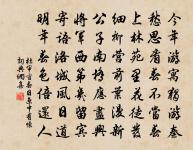 今年遊寓獨遊秦
愁思看春不當春
上林苑裏花徒發
細柳營前葉漫新
公子南橋應盡興
將軍西第幾留賓
寄語洛城風日道
明年春色倍還人
杜審言春日京中有懷
詞典網集